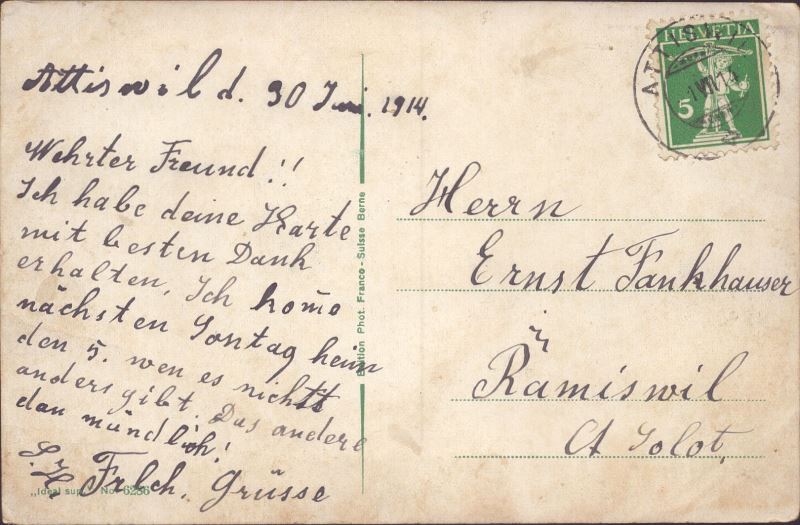 Attiswil d. 30 Juni. 1914.
Wehrter Freund!!
Ich habe deine Karte
mit besten Dank
erhalten, Ich kome
nächsten Sontag heim
den 5. wen es nichts
anders gibt. Das andere
dan mündlich!
Frlch. Grüsse
„Ideal sup." No. 6236
Edition Phot. Franco-Suisse Berne
HELVETIA
5
ATTISWIL
1 VII 14
Herrn
Ernst Fankhauser
Rämiswil
Ct Solot.